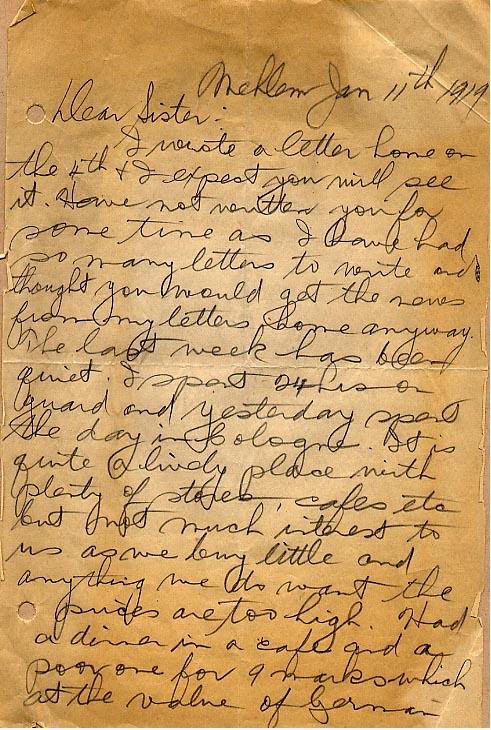 Mehlem Jan 11th 1919
Dear Sister:
I wrote a letter home on
the 4th & I expect you will see
it. Have not written you for
some time as I have had
so many letters to write and
thought you would get the news
from my letters home anyway.
The last week has been
quiet. I spent 24 hrs on
guard and yesterday spent
the day in Cologne. It is
quite a lively place with
plenty of stores, cafes etc
but not much interest to
us as we buy little and
anything we do want the
prices are too high. Had
a dinner in a cafe and a
poor one for 9 marks which
at the value of German